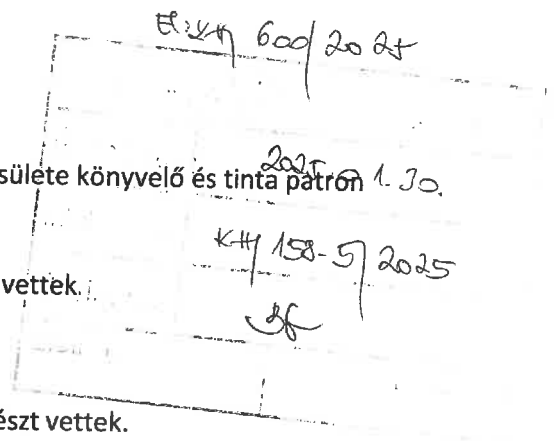 600/2025
sülete könyvelő és tinta patron 2025. 1. 30.
KH/158-5/2025
vettek.
észt vettek.